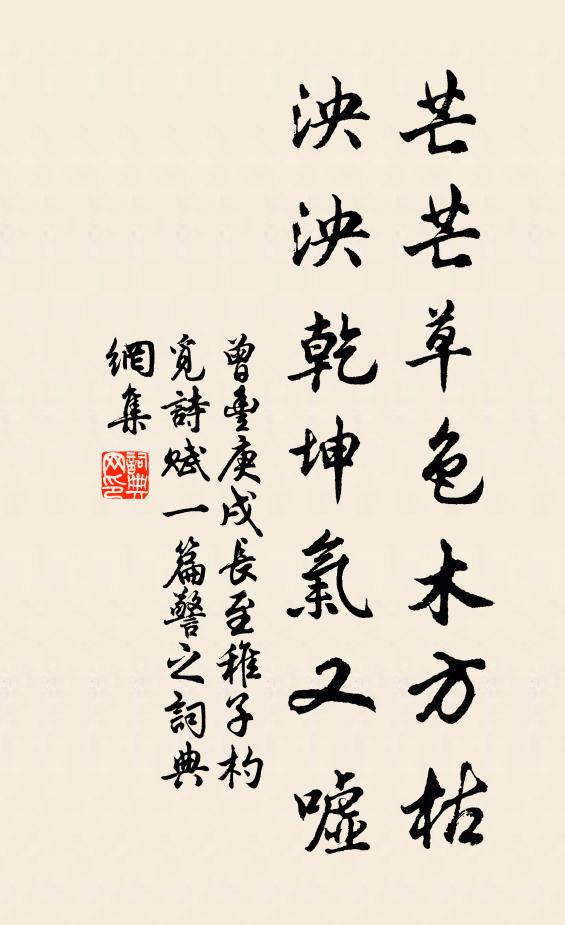 芒芒草色木方枯
泱泱乾坤氣又噓
曾豐庚戌長至稚子杓
覓詩賦一篇警之詞典
網集
詞典
网印